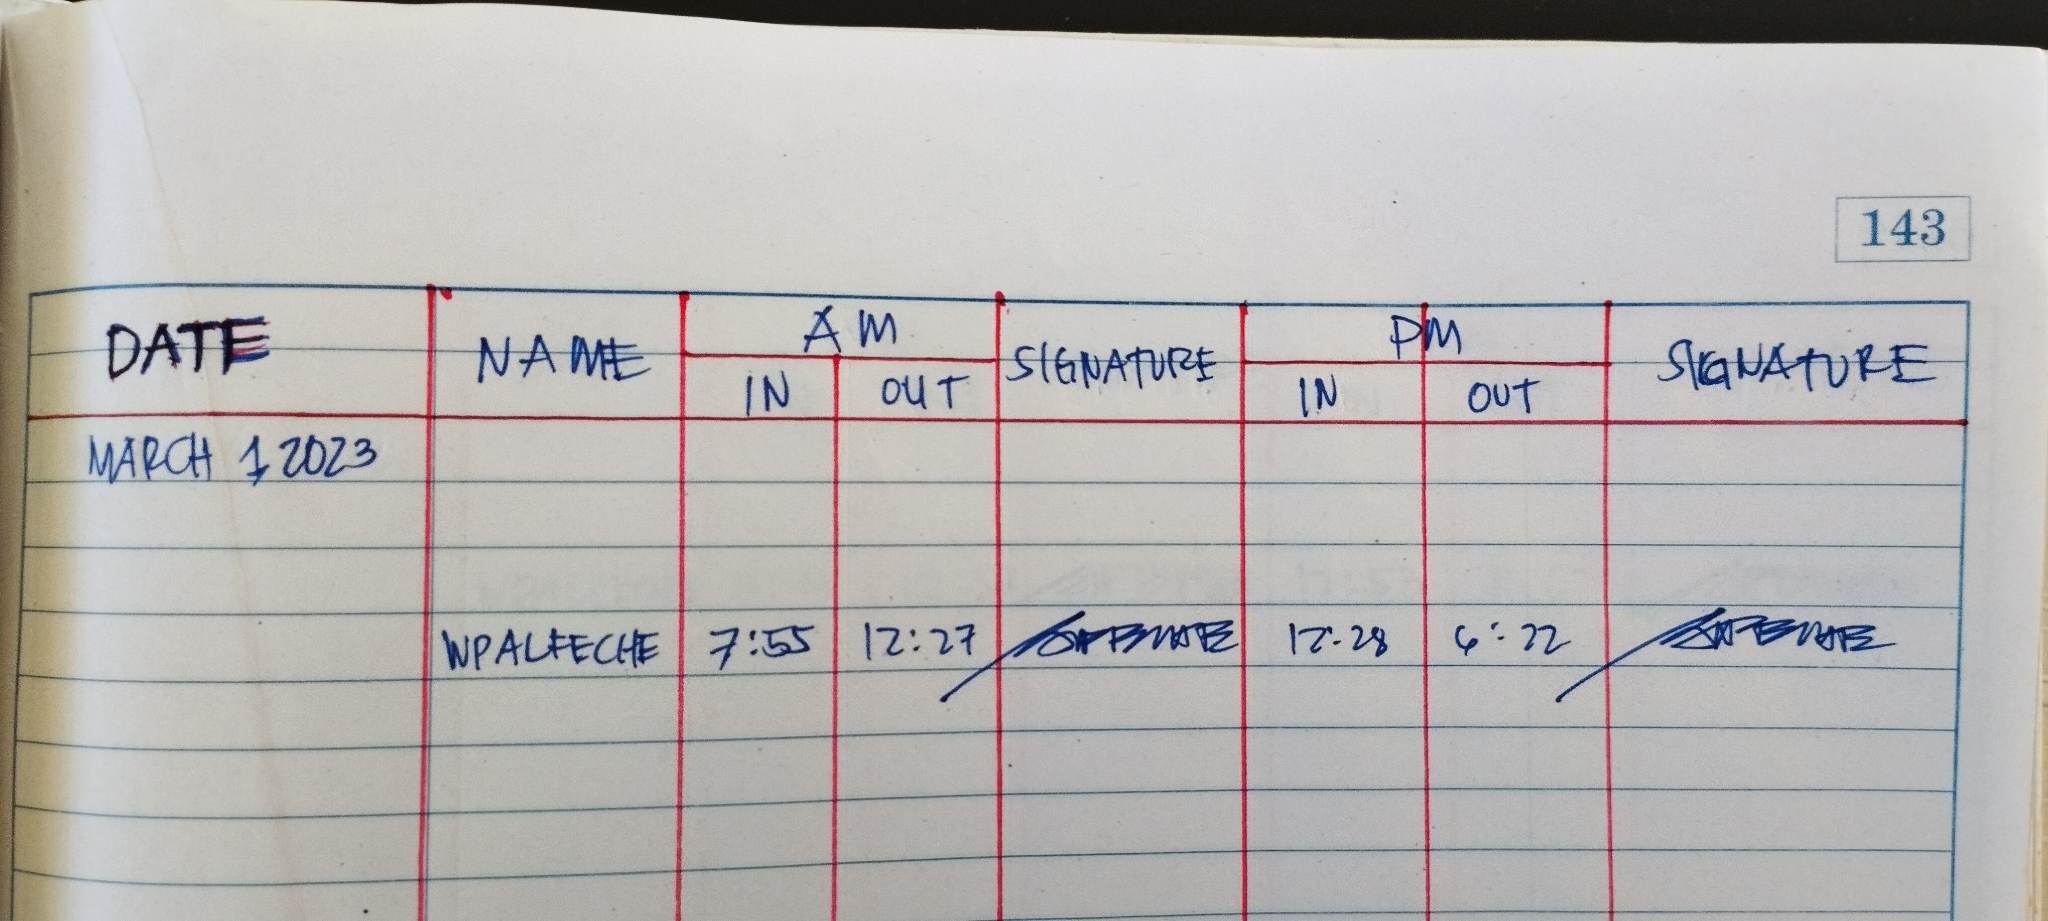 143
DATE NAME AM SIGNATURE PM SIGNATURE
IN OUT IN OUT
MARCH 1, 2023
WPALFECHE 7:55 12:27 12:28 6:22